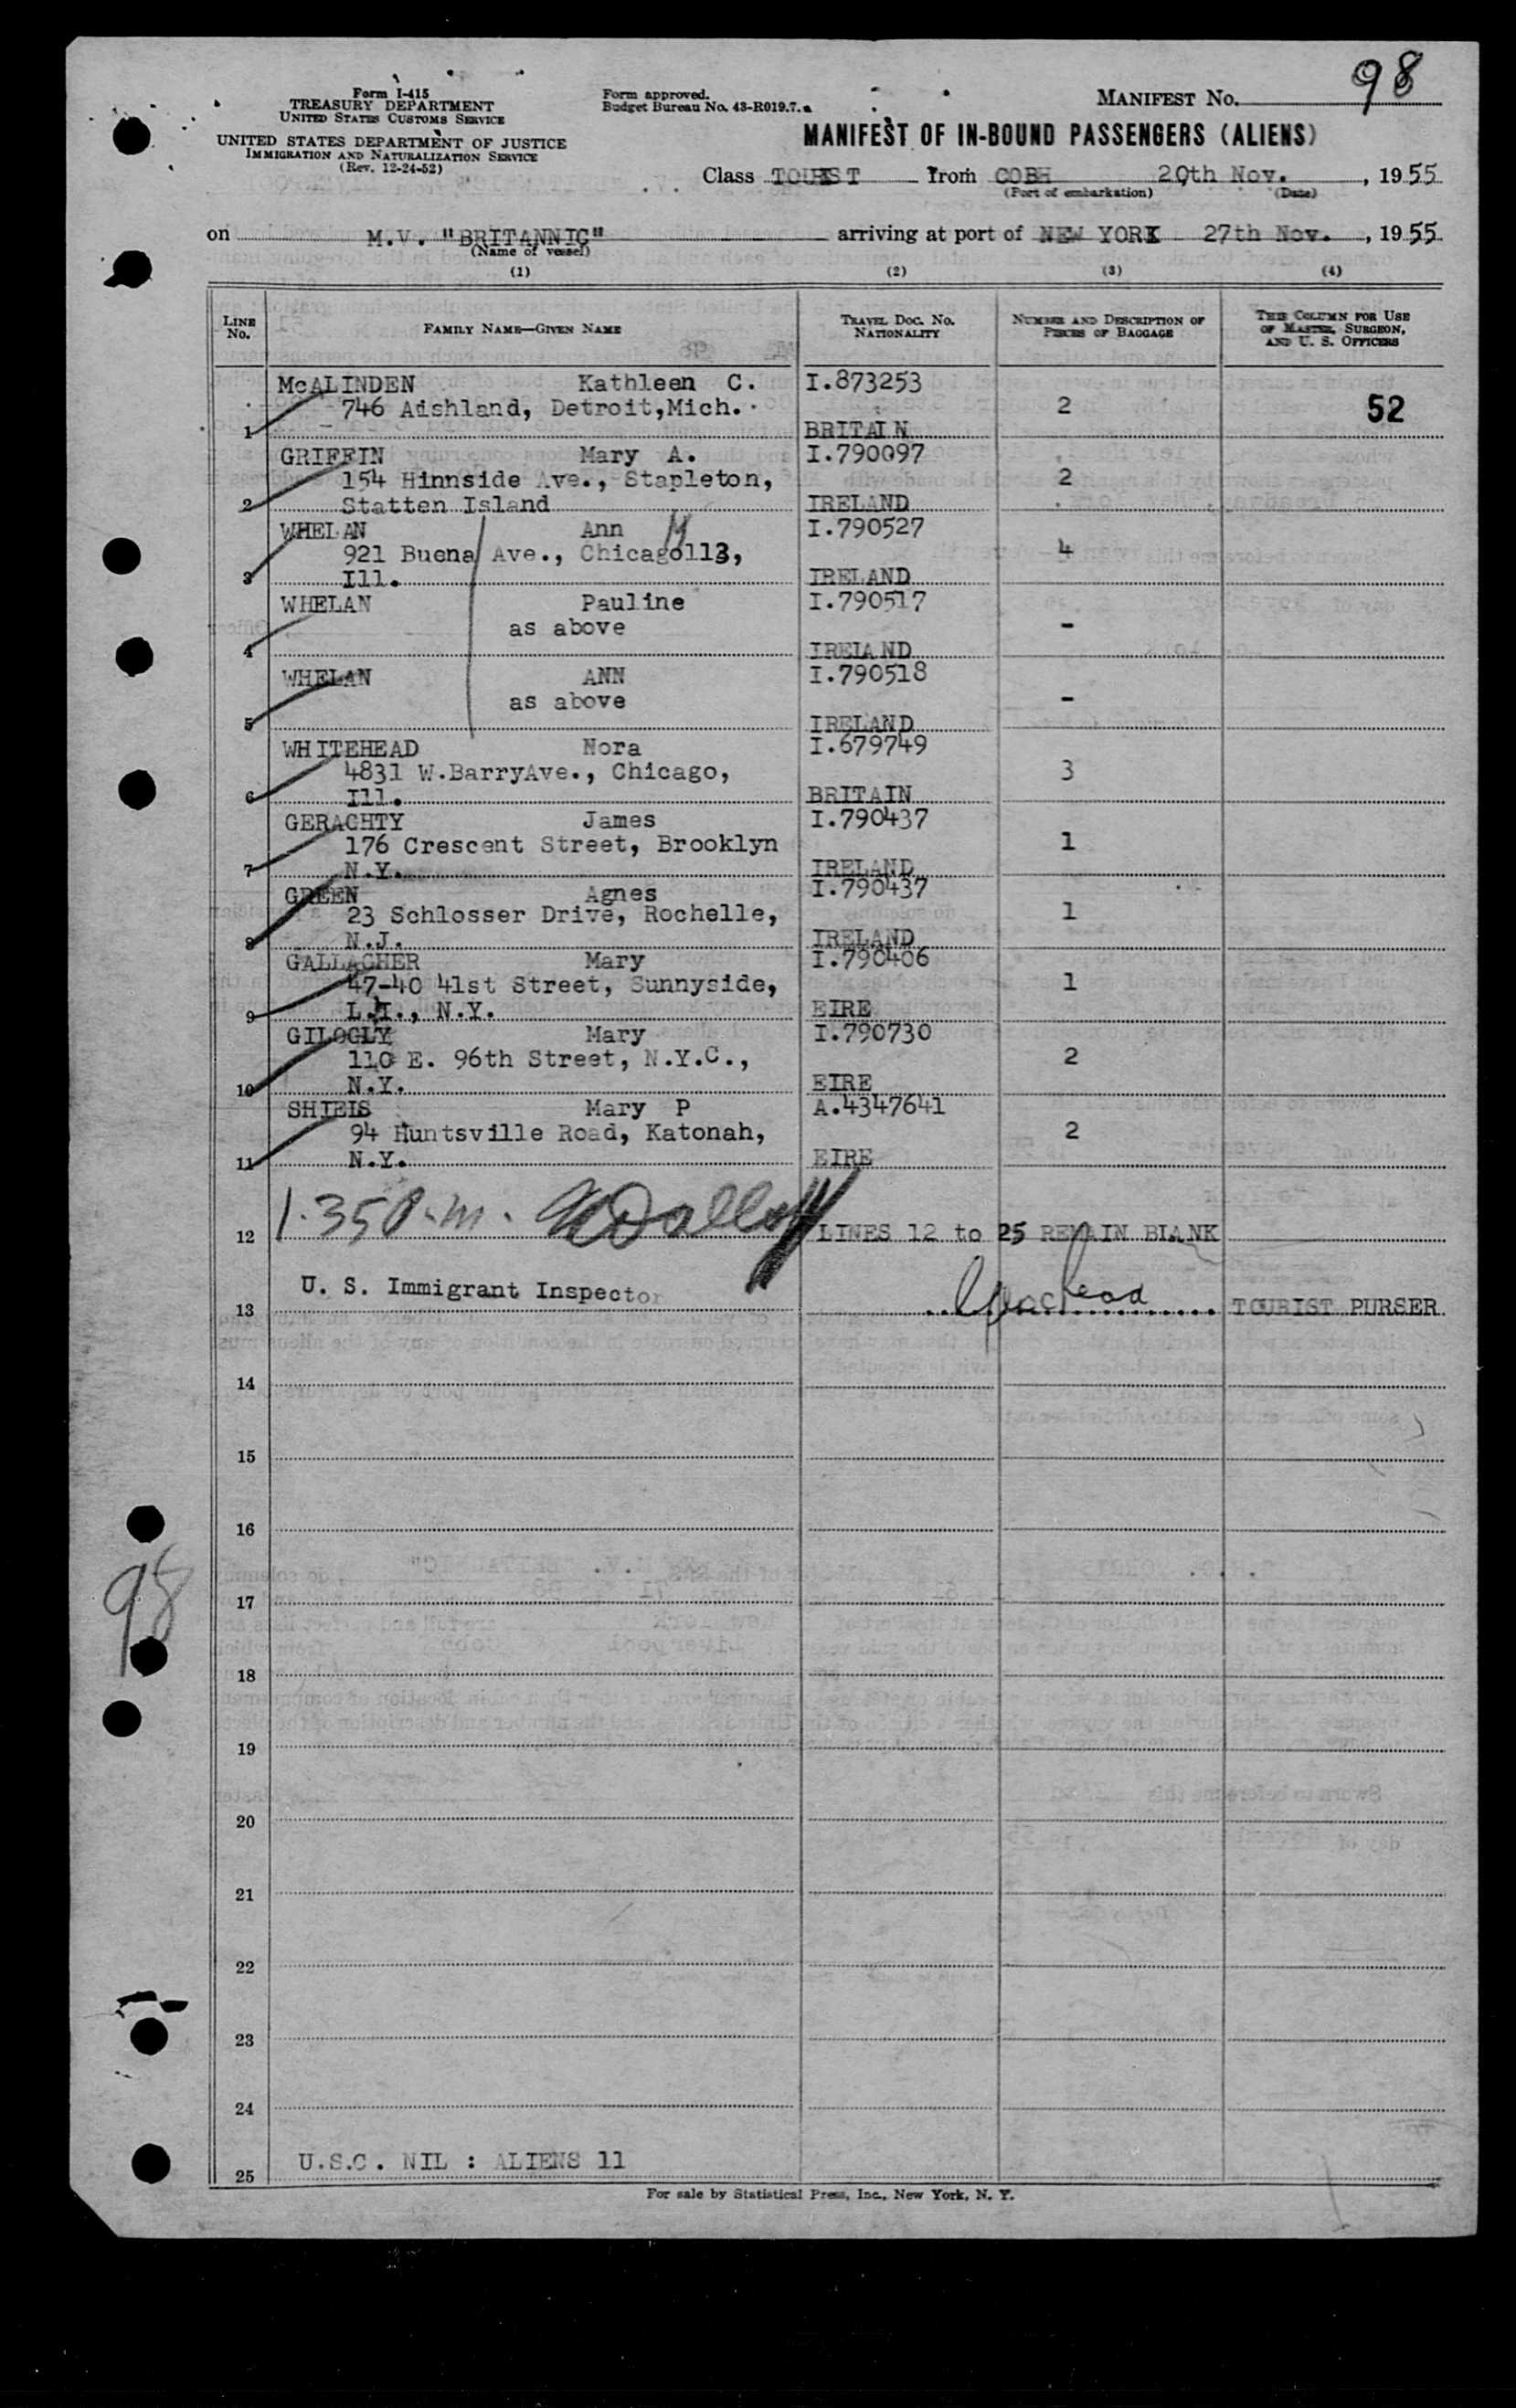 98
Form I-415
TREASURY DEPARTMENT
UNITED STATES CUSTOMS SERVICE
UNITED STATES DEPARTMENT OF JUSTICE
IMMIGRATION AND NATURALIZATION SERVICE
(Rev. 12-24-52)
Form approved.
Budget Bureau No. 43-R019.7.
MANIFEST No.
MANIFEST OF IN-BOUND PASSENGERS (ALIENS)
Class TOURIST from COBH 20th Nov., 1955
(Port of embarkation) (Date)
on M.V. "BRITANNIC" arriving at port of NEW YORK 27th Nov., 1955
(Name of vessel)
(1) (2) (3) (4)
LINE No. FAMILY NAME—GIVEN NAME TRAVEL DOC. No. NATIONALITY NUMBER AND DESCRIPTION OF PIECES OF BAGGAGE THIS COLUMN FOR USE OF MASTER, SURGEON, AND U. S. OFFICERS
McALINDEN Kathleen C. I.873253
746 Aishland, Detroit,Mich. 2 52
1 BRITAIN
GRIFFIN Mary A. I.790097
154 Hinnside Ave., Stapleton, 2
2 Statten Island IRELAND
WHELAN Ann M I.790527
921 Buena Ave., Chicago113, 4
3 Ill. IRELAND
WHELAN Pauline I.790517
as above -
4 IRELAND
WHELAN ANN I.790518
as above -
5 IRELAND
WHITEHEAD Nora I.679749
4831 W.BarryAve., Chicago, 3
6 Ill. BRITAIN
GERAGHTY James I.790437
176 Crescent Street, Brooklyn 1
7 N.Y. IRELAND
GREEN Agnes I.790437
23 Schlosser Drive, Rochelle, 1
8 N.J. IRELAND
GALLAGHER Mary I.790406
47-40 41st Street, Sunnyside, 1
9 L.I., N.Y. EIRE
GILOGLY Mary I.790730
110 E. 96th Street, N.Y.C., 2
10 N.Y. EIRE
SHIEIS Mary P A.4347641
94 Huntsville Road, Katonah, 2
11 N.Y. EIRE
1.35 P.m.
12 LINES 12 to 25 REMAIN BLANK
U. S. Immigrant Inspector
13 TOURIST PURSER
14
15
16
17
98
18
19
20
21
22
23
24
25 U.S.C. NIL : ALIENS 11
For sale by Statistical Press, Inc., New York, N. Y.